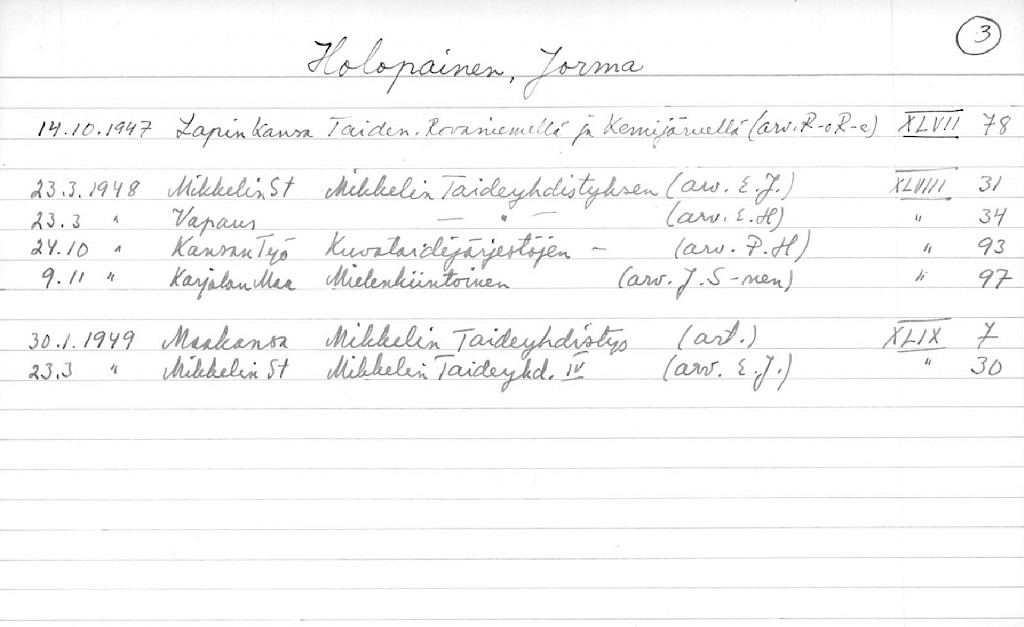 3
Holopainen, Jorma
14.10.1947 Lapin Kansa Taiden. Rovaniemellä ja Kemijärvellä (arv. R-o R-e) XLVII 78
23.3.1948 Mikkelin St Mikkelin Taideyhdistyksen (arv. E.J.) XLVIII 31
23.3 " Vapaus — " — (arv. E.H) " 34
24.10 " Kansan Työ Kuvataidejärjestöjen — (arv. P.H) " 93
9.11 " Karjalan Maa Mielenkiintoinen (arv. J.S-nen) " 97
30.1.1949 Maakansa Mikkelin Taideyhdistys (art.) XLIX 7
23.3 " Mikkelin St Mikkelin Taideyhd. IV (arv. E.J.) " 30